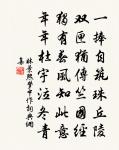 一抔自筑珠丘陵
双匣犹传竺国经
独有春风知此意
年年杜宇泣冬青
林景熙梦中作词典网
集